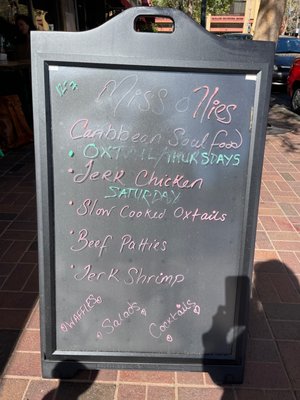 Miss Ollies
Caribbean Soul Food
OXTAIL THURSTAYS
Jerk Chicken
SATURDAY
Slow Cooked Oxtails
Beef Patties
Jerk Shrimp
WAFFLES
Salads
Cocktails